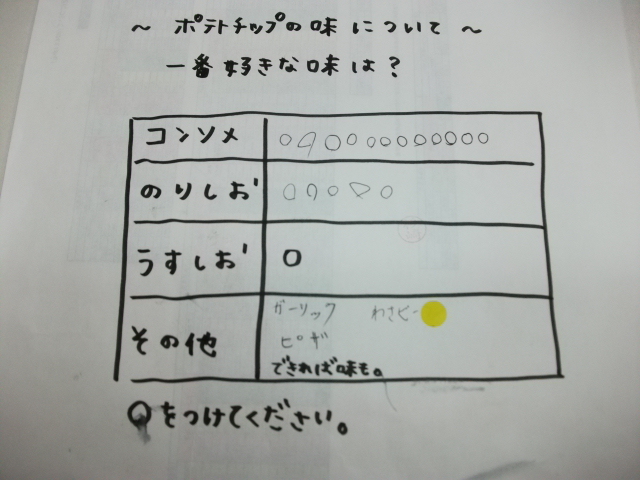 ～ ポテトチップの味について ～
一番好きな味は？
コンソメ ○○○○○○○○○○○○○
のりしお ○○○○○
うすしお ○
その他
ガーリック わさビー
ピザ
できれば味も。
○をつけてください。